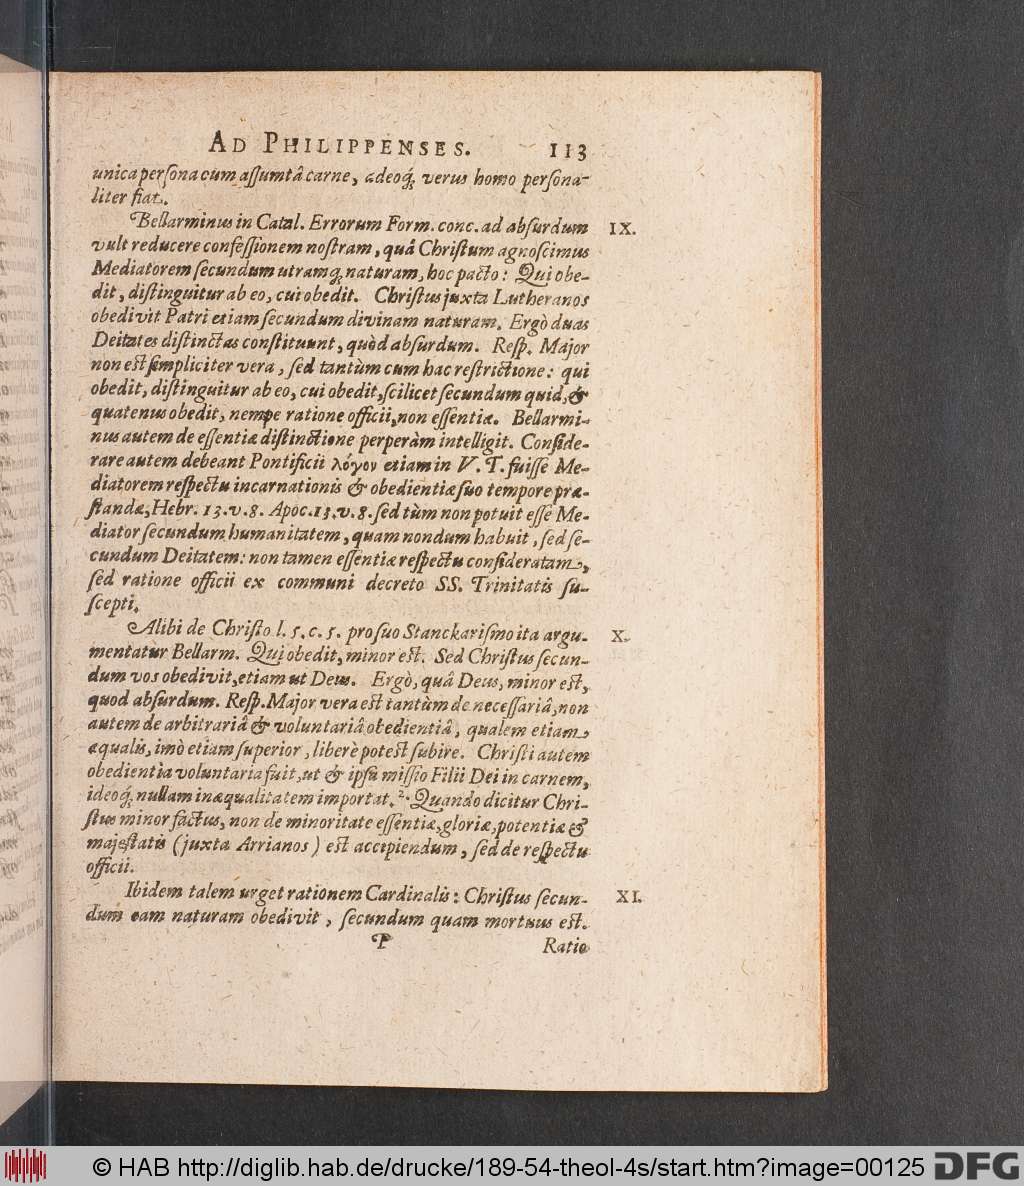 AD PHILIPPENSES. 113
unica persona cum aſſumtâ carne, adeoq́; verus homo perſona-
liter fiat.
Bellarminus in Catal. Errorum Form. conc. ad abſurdum IX.
vult reducere confeſſionem noſtram, quâ Chriſtum agnoſcimus
Mediatorem ſecundum utramq; naturam, hoc pacto: Qui obe-
dit, diſtinguitur ab eo, cui obedit. Chriſtus juxta Lutheranos
obedivit Patri etiam ſecundum divinam naturam. Ergò duas
Deitates diſtinctas conſtituunt, quòd abſurdum. Reſp. Major
non est ſimpliciter vera, ſed tantùm cum hac reſtrictione: qui
obedit, diſtinguitur ab eo, cui obedit, ſcilicet ſecundum quid, &
quatenus obedit, nempe ratione officii, non eſſentiæ. Bellarmi-
nus autem de eſſentiæ diſtinctione perperàm intelligit. Conſide-
rare autem debeant Pontificii λόγον etiam in V. T. fuiſſe Me-
diatorem reſpectu incarnationis & obedientiæ ſuo tempore præ-
ſtandæ, Hebr. 13. v. 8. Apoc. 13. v. 8. ſed tùm non potuit eſſe Me-
diator ſecundum humanitatem, quam nondum habuit, ſed ſe-
cundum Deitatem: non tamen eſſentiæ reſpectu conſideratam,
ſed ratione officii ex communi decreto SS. Trinitatis ſu-
ſcepti.
Alibi de Chriſto l. 5. c. 5. pro ſuo Stanckariſmo ita argu- X.
mentatur Bellarm. Qui obedit, minor eſt. Sed Chriſtus ſecun-
dum vos obedivit, etiam ut Deus. Ergò, quâ Deus, minor eſt,
quod abſurdum. Reſp. Major vera est tantùm de neceſſariâ, non
autem de arbitrariâ & voluntariâ obedientiâ, qualem etiam
æqualis, imò etiam ſuperior, liberè potest ſubire. Chriſti autem
obedientia voluntaria fuit, ut & ipſa miſſio Filii Dei in carnem,
ideoq́; nullam inæqualitatem importat. 2. Quando dicitur Chri-
ſtus minor factus, non de minoritate eſſentiæ, gloriæ, potentiæ &
majeſtatis (juxta Arrianos) est accipiendum, ſed de reſpectu
officii.
Ibidem talem urget rationem Cardinalis: Chriſtus ſecun- XI.
dum eam naturam obedivit, ſecundum quam mortuus est.
P Ratio
© HAB http://diglib.hab.de/drucke/189-54-theol-4s/start.htm?image=00125 DFG